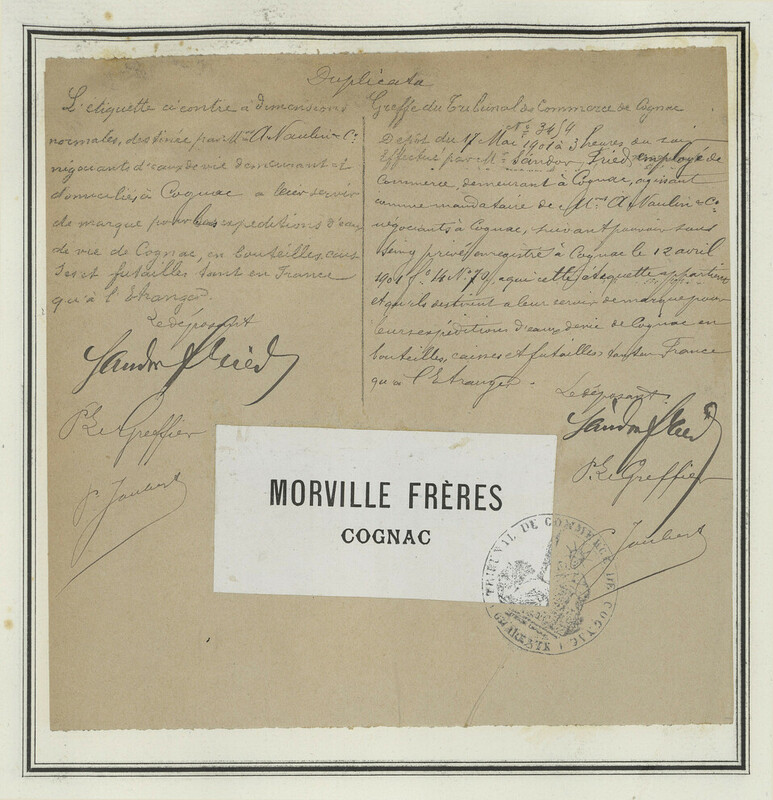 Duplicata
L'etiquette ci contre à dimensions
normales, destinée par Mrs A. Naulin & Co
négociants d'eaux de vie demeurant et
domiciliés à Cognac a leur servir
de marque pour les expeditions d'eaux
de vie de Cognac, en bouteilles, cais
ses et futailles tant en France
qu'à l'Etranger.
Le déposant
Sandor Fried
Pr Le Greffier
P. Joubert
Greffe du Tribunal de Commerce de Cognac
No 3454
Dépôt du 17 Mai 1901 à 3 heures du soir
Effectué par Mr Sandor Fried employé de
Commerce, demeurant à Cognac, agissant
comme mandataire de Mrs A. Naulin & Co
négociants à Cognac, suivant pouvoir sous
seing privé enregistré à Cognac le 12 avril
1901 fo 14 No 79, a qui cette étiquette appartient
et qu'ils destinent a leur servir de marque pour
leurs expéditions d'eaux de vie de Cognac en
bouteilles, caisses et futailles tant en France
qu'à l'Etranger.
Le déposant
Sandor Fried
Pr Le Greffier
Joubert
MORVILLE FRÈRES
COGNAC
TRIBUNAL DE COMMERCE DE COGNAC
(CHARENTE)